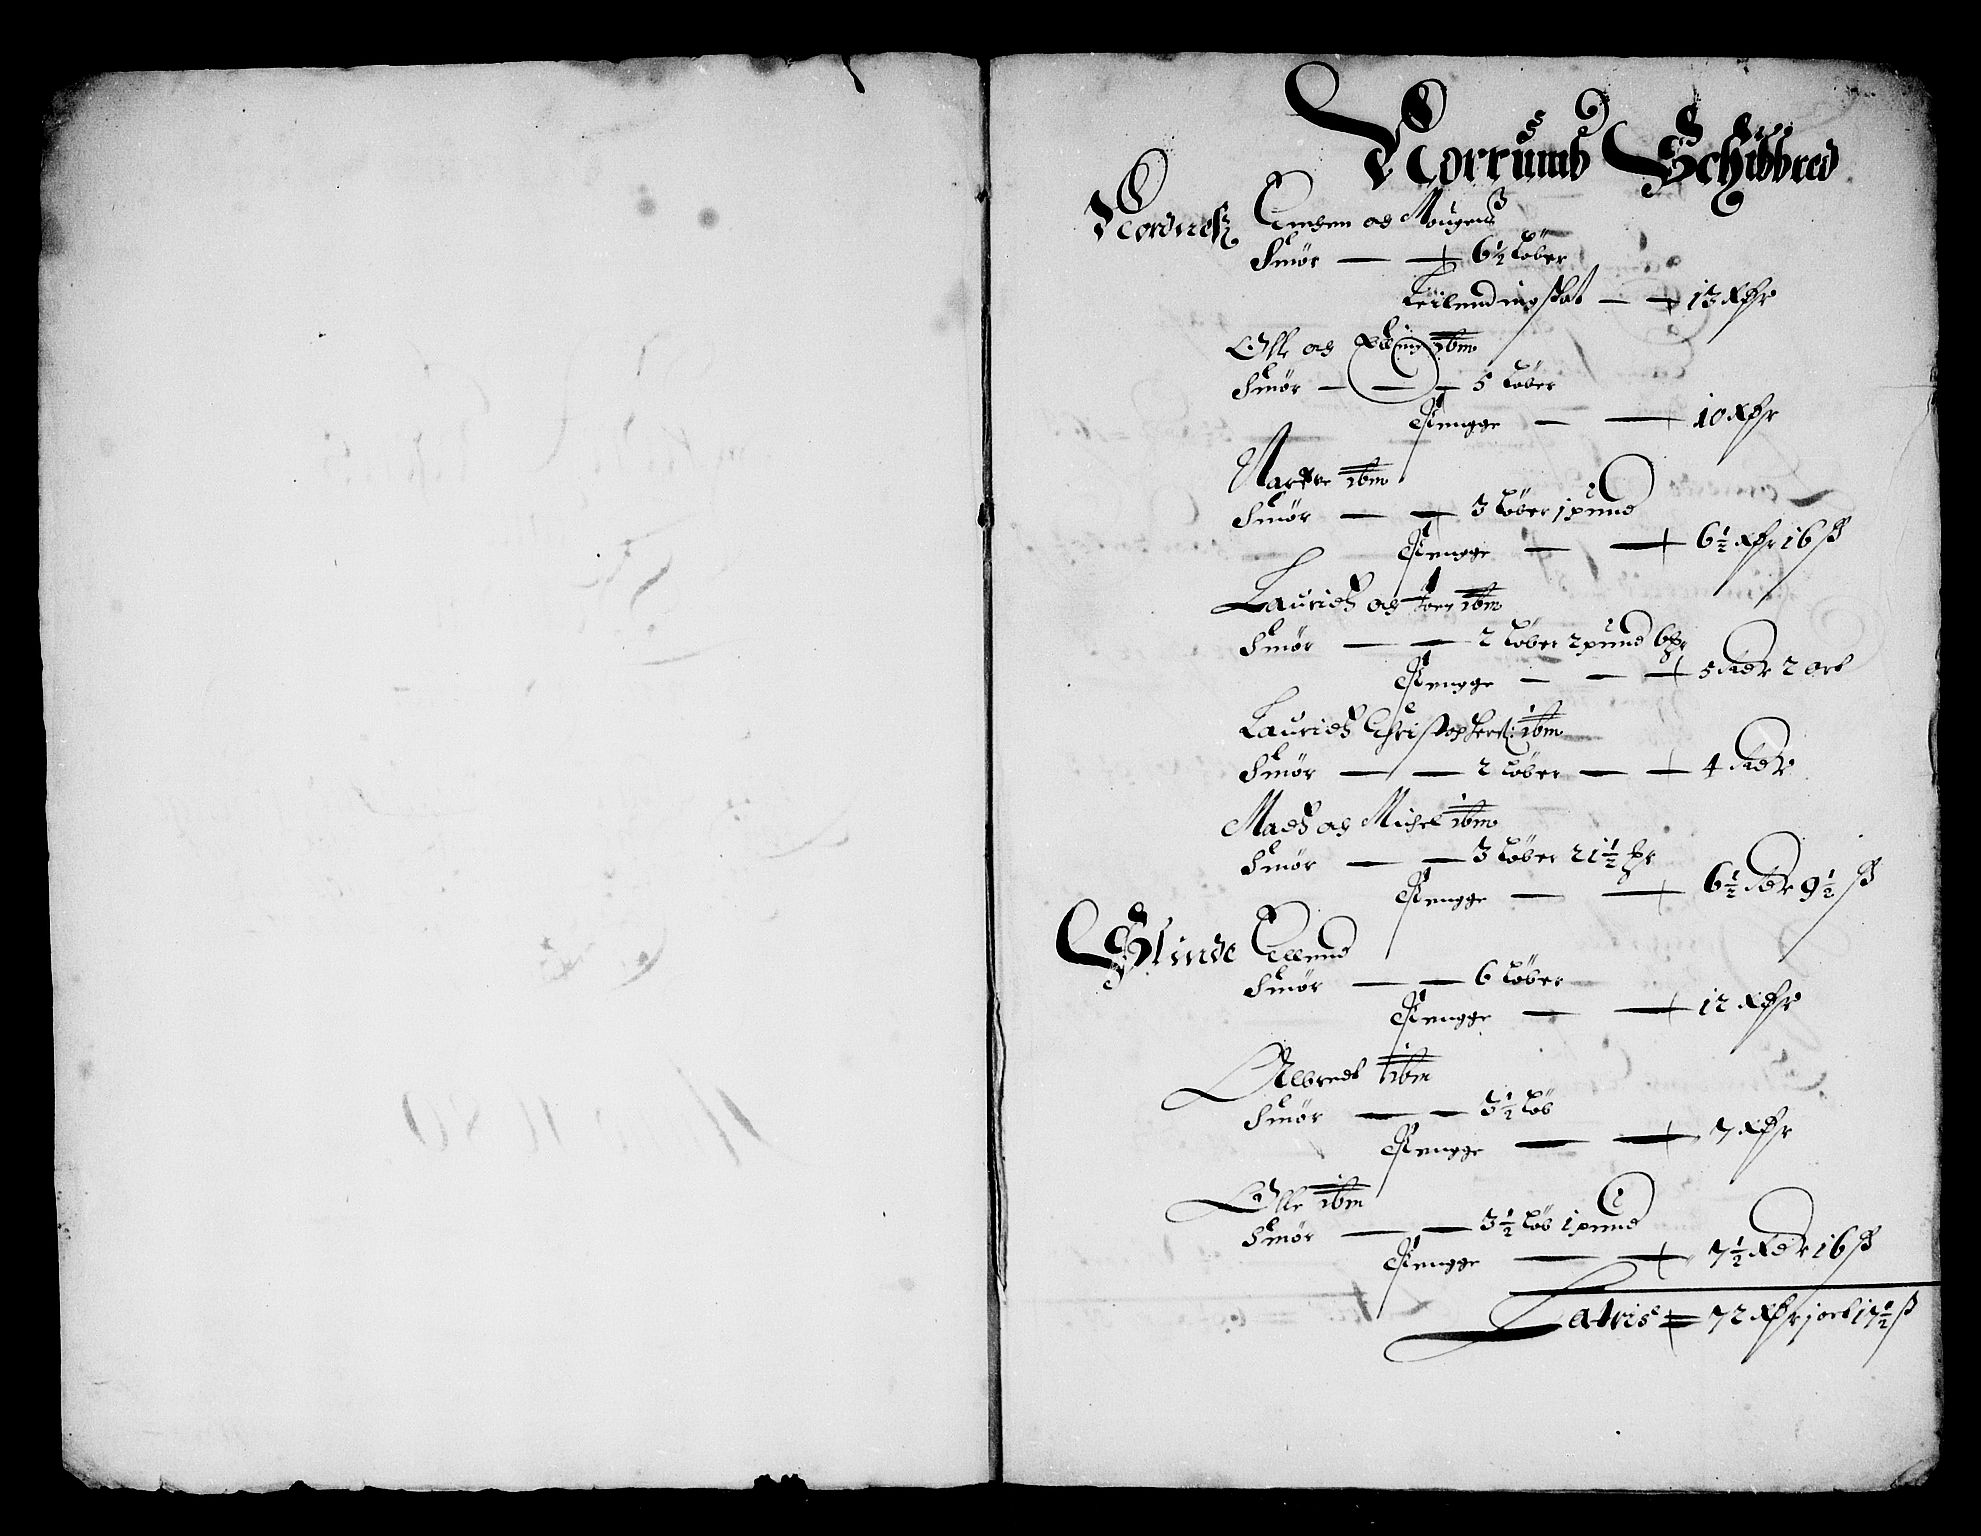 Norrumb Schibbred
Nordnesz Amden og Mougens
Smör — — 6½ Löber
Leilendingskat — — 13 Rdr
Olle og Elling ibm
Smör — — — 5 Löber
Penngge — — 10 Rdr
Narfve ibm
Smör — — 3 Löber 1 pund
Penngge — — 6½ Rdr 16 ß
Lauridtz og Joen ibm
Smör — — 2 Löber 2 pund 6 mr
Penngge — — — 5 Rdr 2 ort
Lauridtz Christophers: ibm
Smör — — 2 Löber — — 4 Rdr
Madtz og Michel ibm
Smör — — 3 Löber 21½ mr
Penngge — — 6½ Rdr 9½ ß
Slinde Ellend
Smör — — 6 Löber
Penngge — — 12 Rdr
Albredt ibm
Smör — — 3½ Löb
Penngge — — 7 Rdr
Olle ibm
Smör — — 3½ Löb 1 pund
Penngge — — 7½ Rdr 16 ß
Latris = 72 Rdr 1 ort 17½ ß